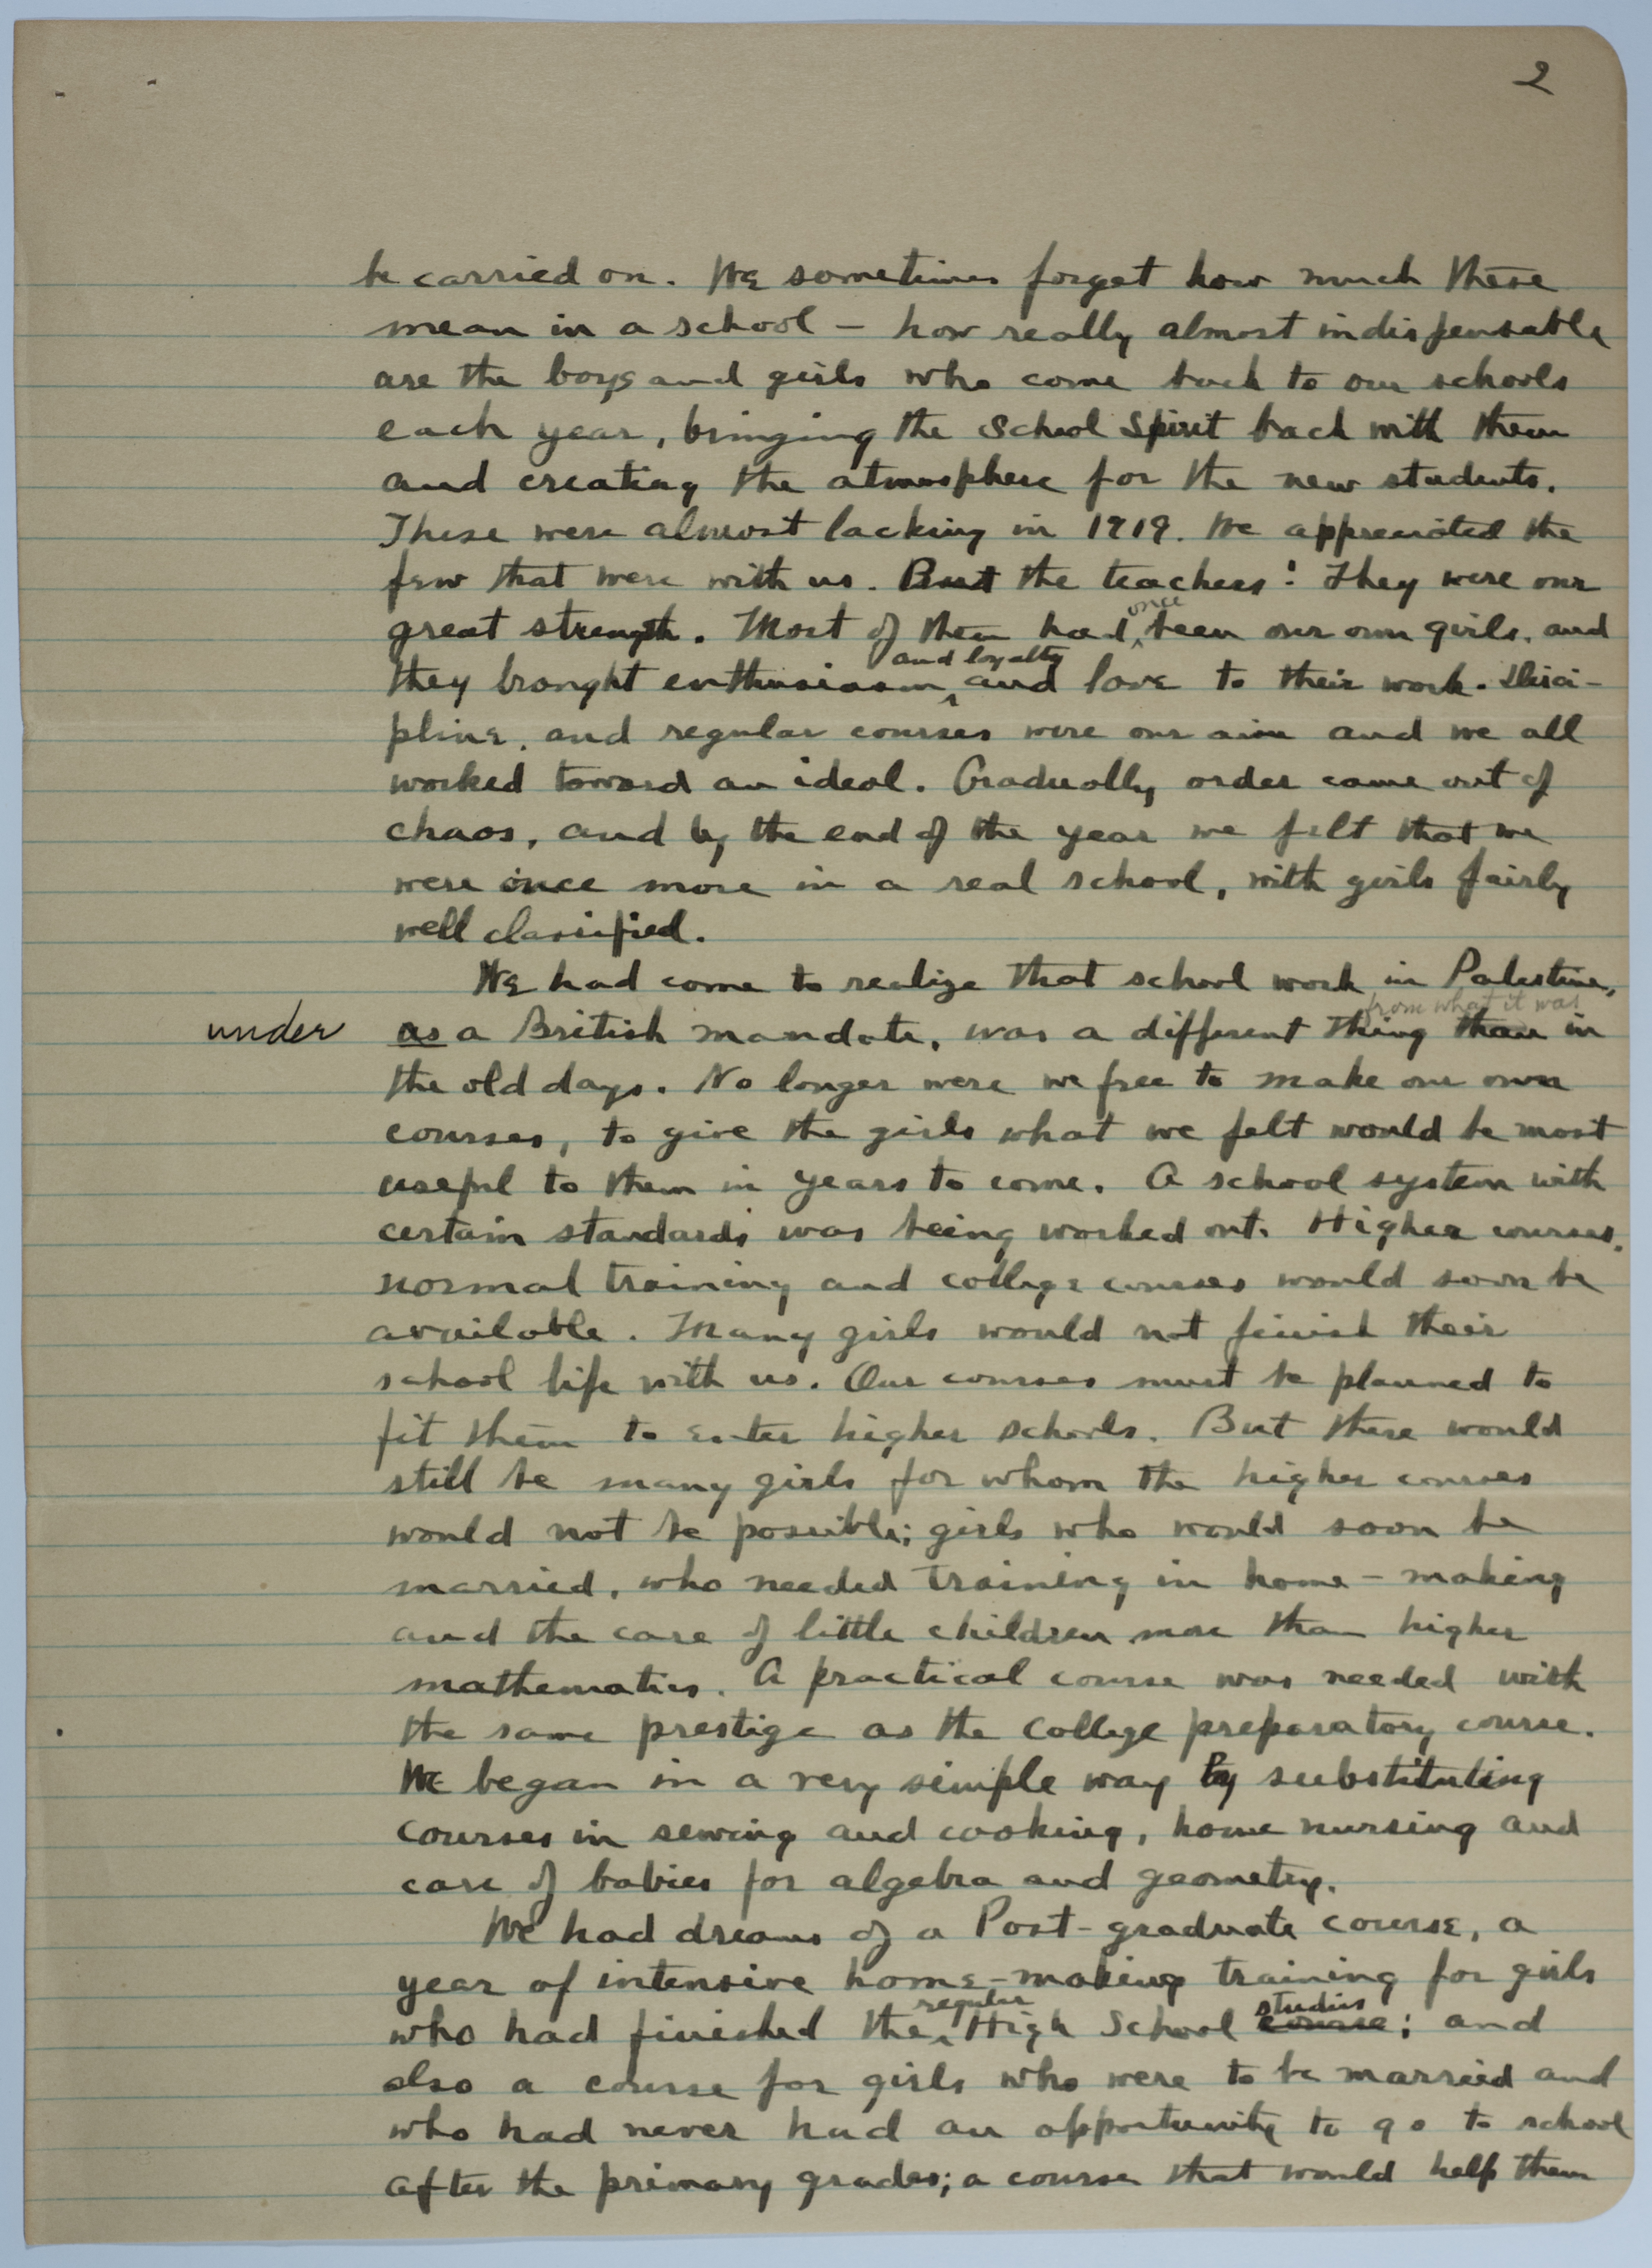 2
be carried on. We sometimes forget how much these
mean in a school – how really almost indispensable
are the boys and girls who come back to our schools
each year, bringing the School Spirit back with them
and creating the atmosphere for the new students.
These were almost lacking in 1919. We appreciated the
few that were with us. But the teachers! They were our
once
great strength. Most of them had been our own girls, and
and loyalty
they brought enthusiasm and love to their work. Disci-
pline, and regular courses were our aim and we all
worked toward an ideal. Gradually order came out of
chaos, and by the end of the year we felt that we
were once more in a real school, with girls fairly
well classified.
We had come to realize that school work in Palestine,
from what it was
under as a British mandate, was a different thing than in
the old days. No longer were we free to make our own
courses, to give the girls what we felt would be most
useful to them in years to come. A school system with
certain standards was being worked out. Higher courses,
normal training and college courses would soon be
available. Many girls would not finish their
school life with us. Our courses must be planned to
fit them to enter higher schools. But there would
still be many girls for whom the higher courses
would not be possible; girls who would soon be
married, who needed training in home-making
and the care of little children more than higher
mathematics. A practical course was needed with
the same prestige as the College preparatory course.
We began in a very simple way by substituting
courses in sewing and cooking, home nursing and
care of babies for algebra and geometry.
We had dreams of a Post-graduate course, a
year of intensive home-making training for girls
regular studies
who had finished the High School course; and
also a course for girls who were to be married and
who had never had an opportunity to go to school
after the primary grades; a course that would help them